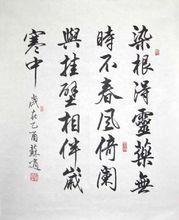 染根得靈藥無
時不春風倚闌
與挂壁相伴歲
寒中
歲在乙酉蘇適